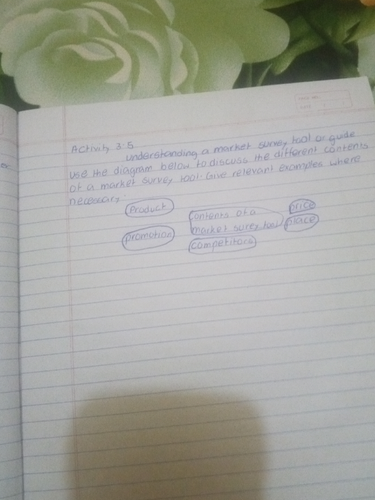 Activity 3.5
Understanding a market survey tool or guide
Use the diagram below to discuss the different contents
of a market survey tool. Give relevant examples where
necessary.
Product
Contents of a
market survey tool
price
place
promotion
competitors